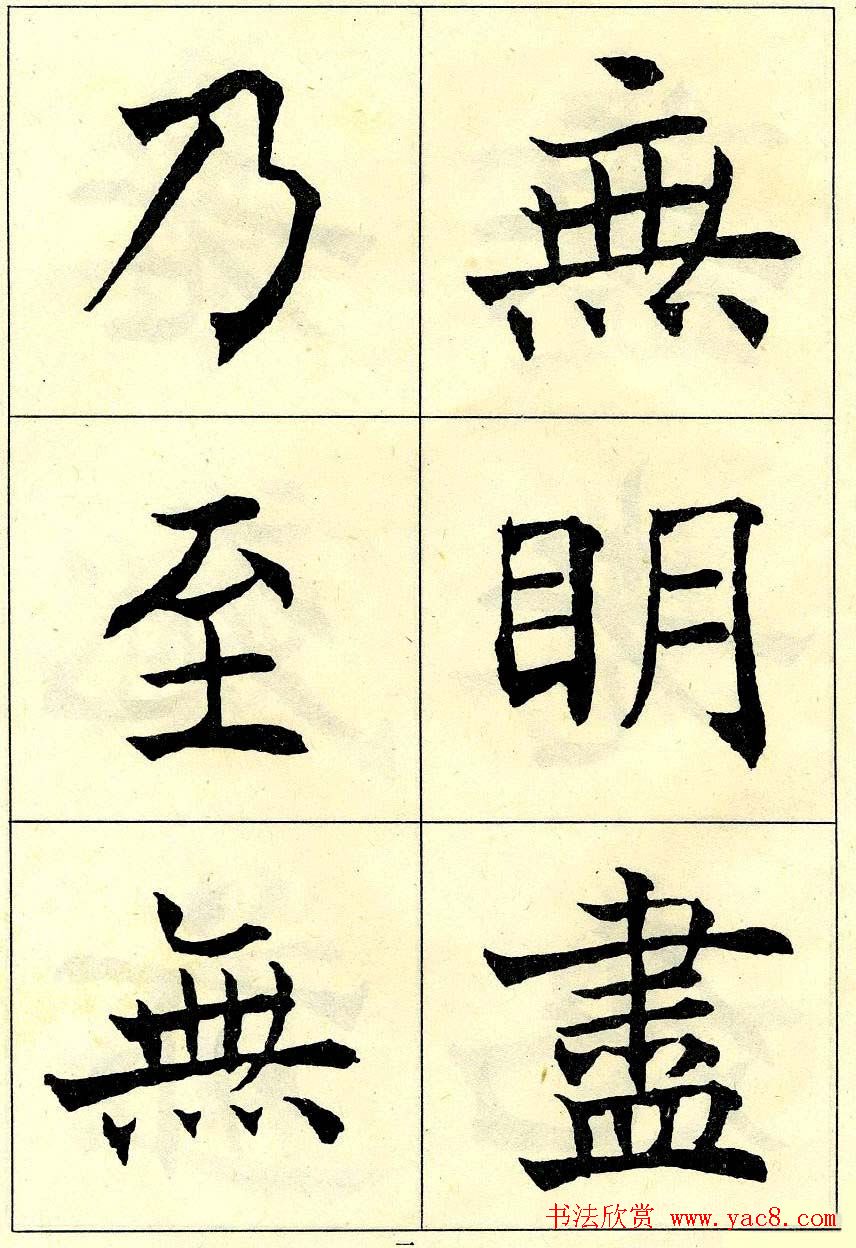 無明盡
乃至無
书法欣赏 www.yac8.com
一